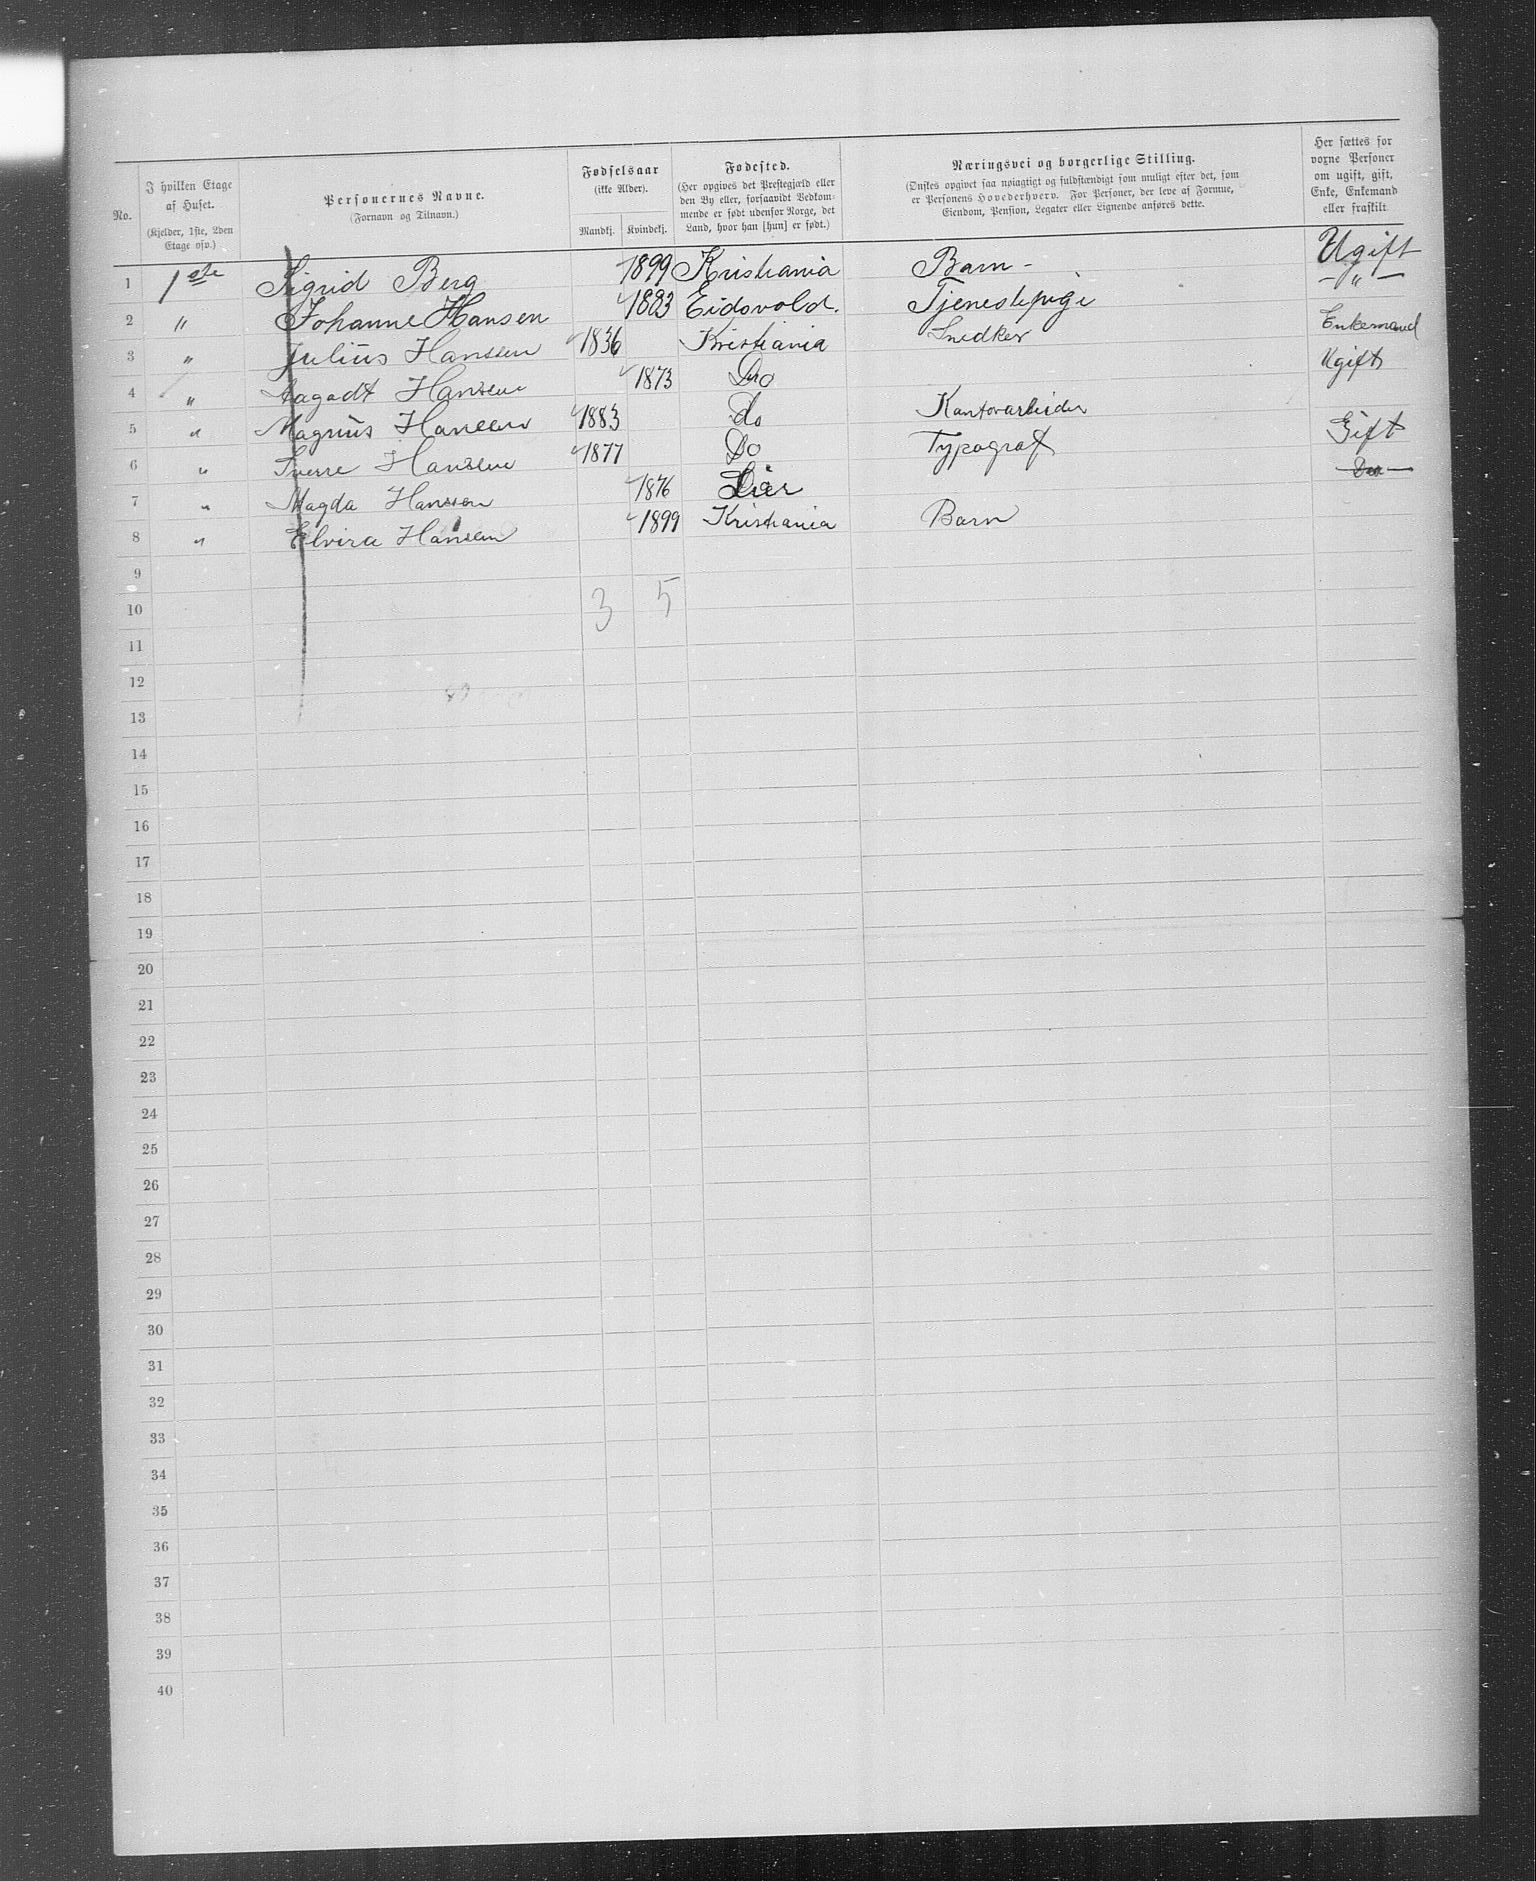 No.
I hvilken Etage af Huset.
(Kjelder, 1ste, 2den Etage osv.)
Personernes Navne.
(Fornavn og Tilnavn.)
Fødselsaar
(ikke Alder).
Mandkj. Kvindekj.
Fødested.
(Her opgives det Prestegjæld eller den By eller, forsaavidt Vedkommende er født udenfor Norge, det Land, hvor han [hun] er født.)
Næringsvei og borgerlige Stilling.
(Ønskes opgivet saa nøiagtigt og fuldstændigt som muligt efter det, som er Personens Hovederhverv. For Personer, der leve af Formue, Eiendom, Pension, Legater eller Lignende anføres dette.
Her sættes for voxne Personer om ugift, gift, Enke, Enkemand eller fraskilt
1 1ste Sigrid Berg 1899 Kristiania Barn - Ugift
2 " Johanne Hansen 1883 Eidsvold. Tjenestepige - " -
3 " Julius Hansen 1836 Kristiania Snedker Enkemand
4 " Aagodt Hansen 1873 Do Ugift
5 " Magnus Hansen 1883 do Kontorarbeider
6 " Sverre Hansen 1877 Do Typograf Gift
7 " Magda Hansen 1876 Lier Do
8 " Elvira Hansen 1899 Kristiania Barn
9
10 3 5
11
12
13
14
15
16
17
18
19
20
21
22
23
24
25
26
27
28
29
30
31
32
33
34
35
36
37
38
39
40